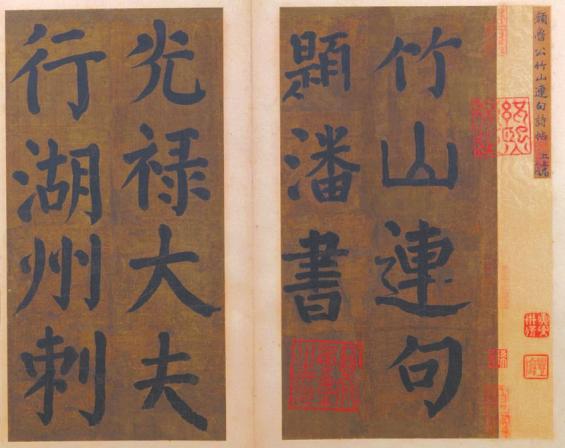 顔魯公竹山連句詩帖
竹山連句
題潘書
光禄大夫
行湖州刺